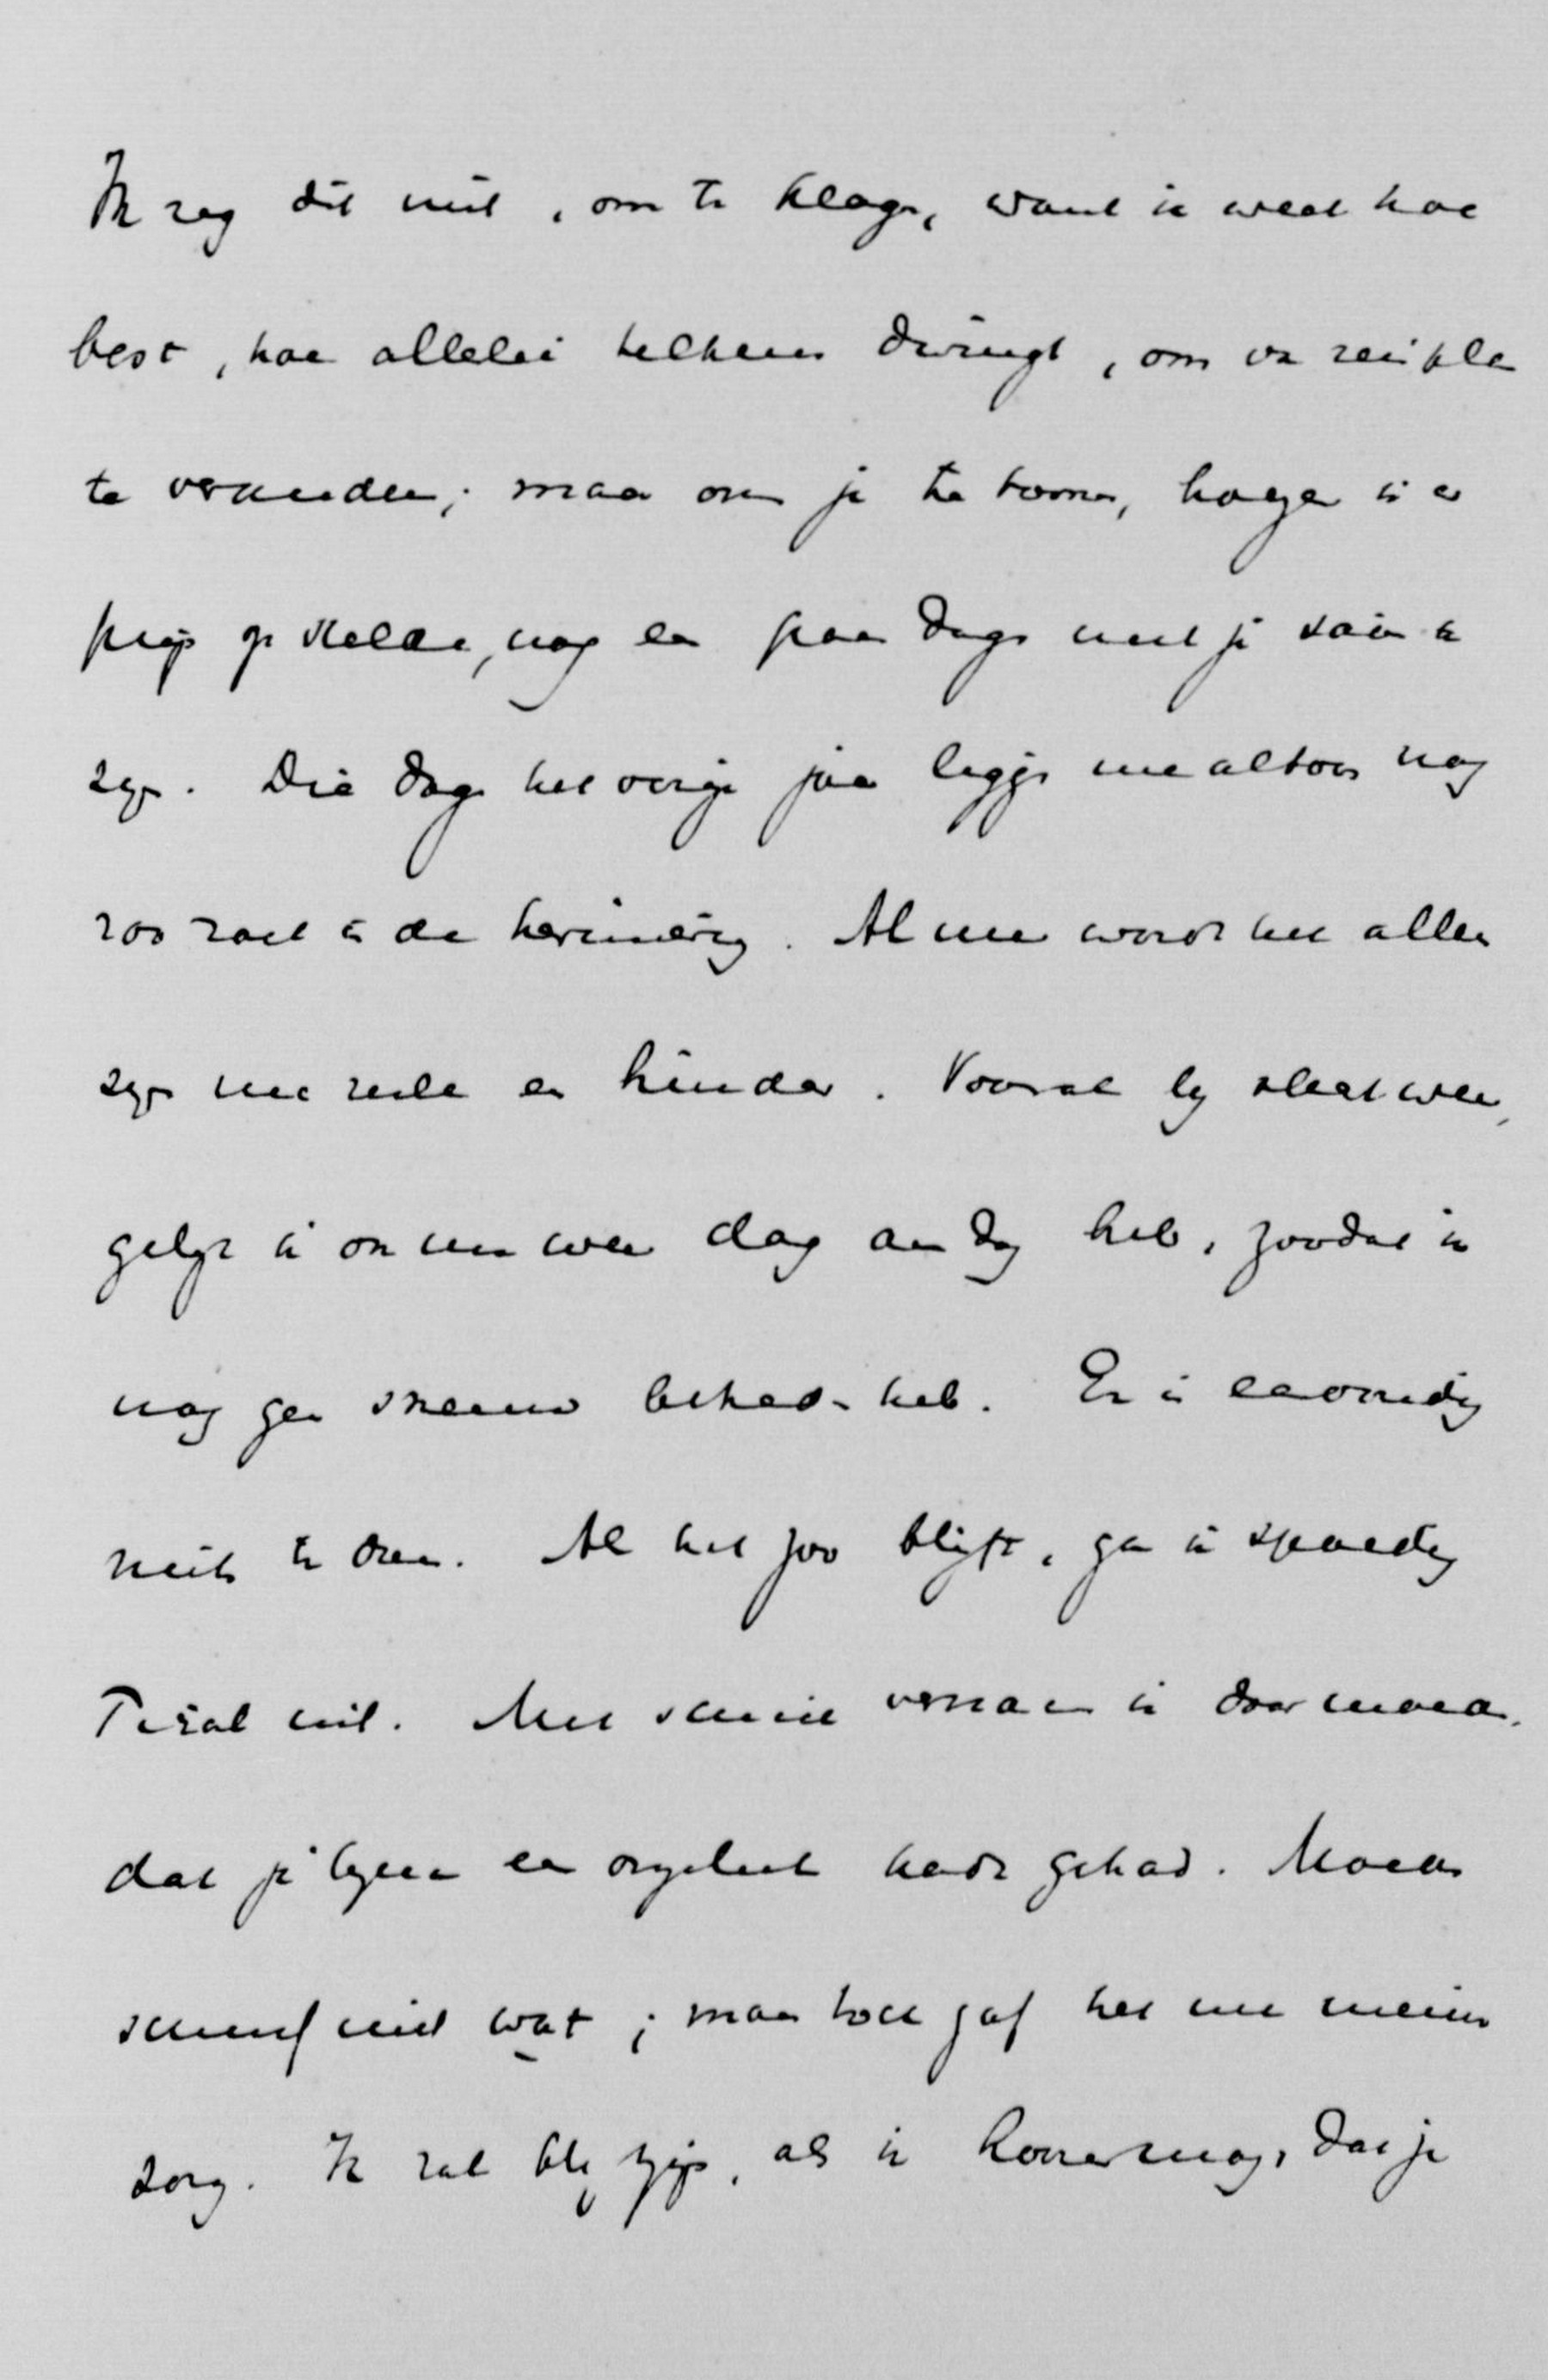 Ik zeg dit niet, om te klagen, want ik weet hoe
best, hoe allerlei telkens dwingt, om van reisplan
te veranderen; maar om je te toonen, hoezeer ik er
prijs op stelde, nog een paar dagen met je samen te
zijn. Die dagen het vorige jaar liggen me altoos nog
zoo zoet in de herinnering. Al mee wordt het alleen
zijn me reeds een hinder. Vooral bij slecht weer,
gelijk ik on nu weer dag aan dag heb, zoodat ik
nog geen sneeuw behad heb. Er is eenvoudig
niets te doen. Als het zoo blijft, ga ik spoedig
Tirol uit. Met schrik vernam ik door moeder,
dat je bijna een ongeluk hadt gehad. Moeder
schreef niet wat; maar toch gaf het me eenige
zorg. Ik zal blij zijn, als ik hooren mag, dat je